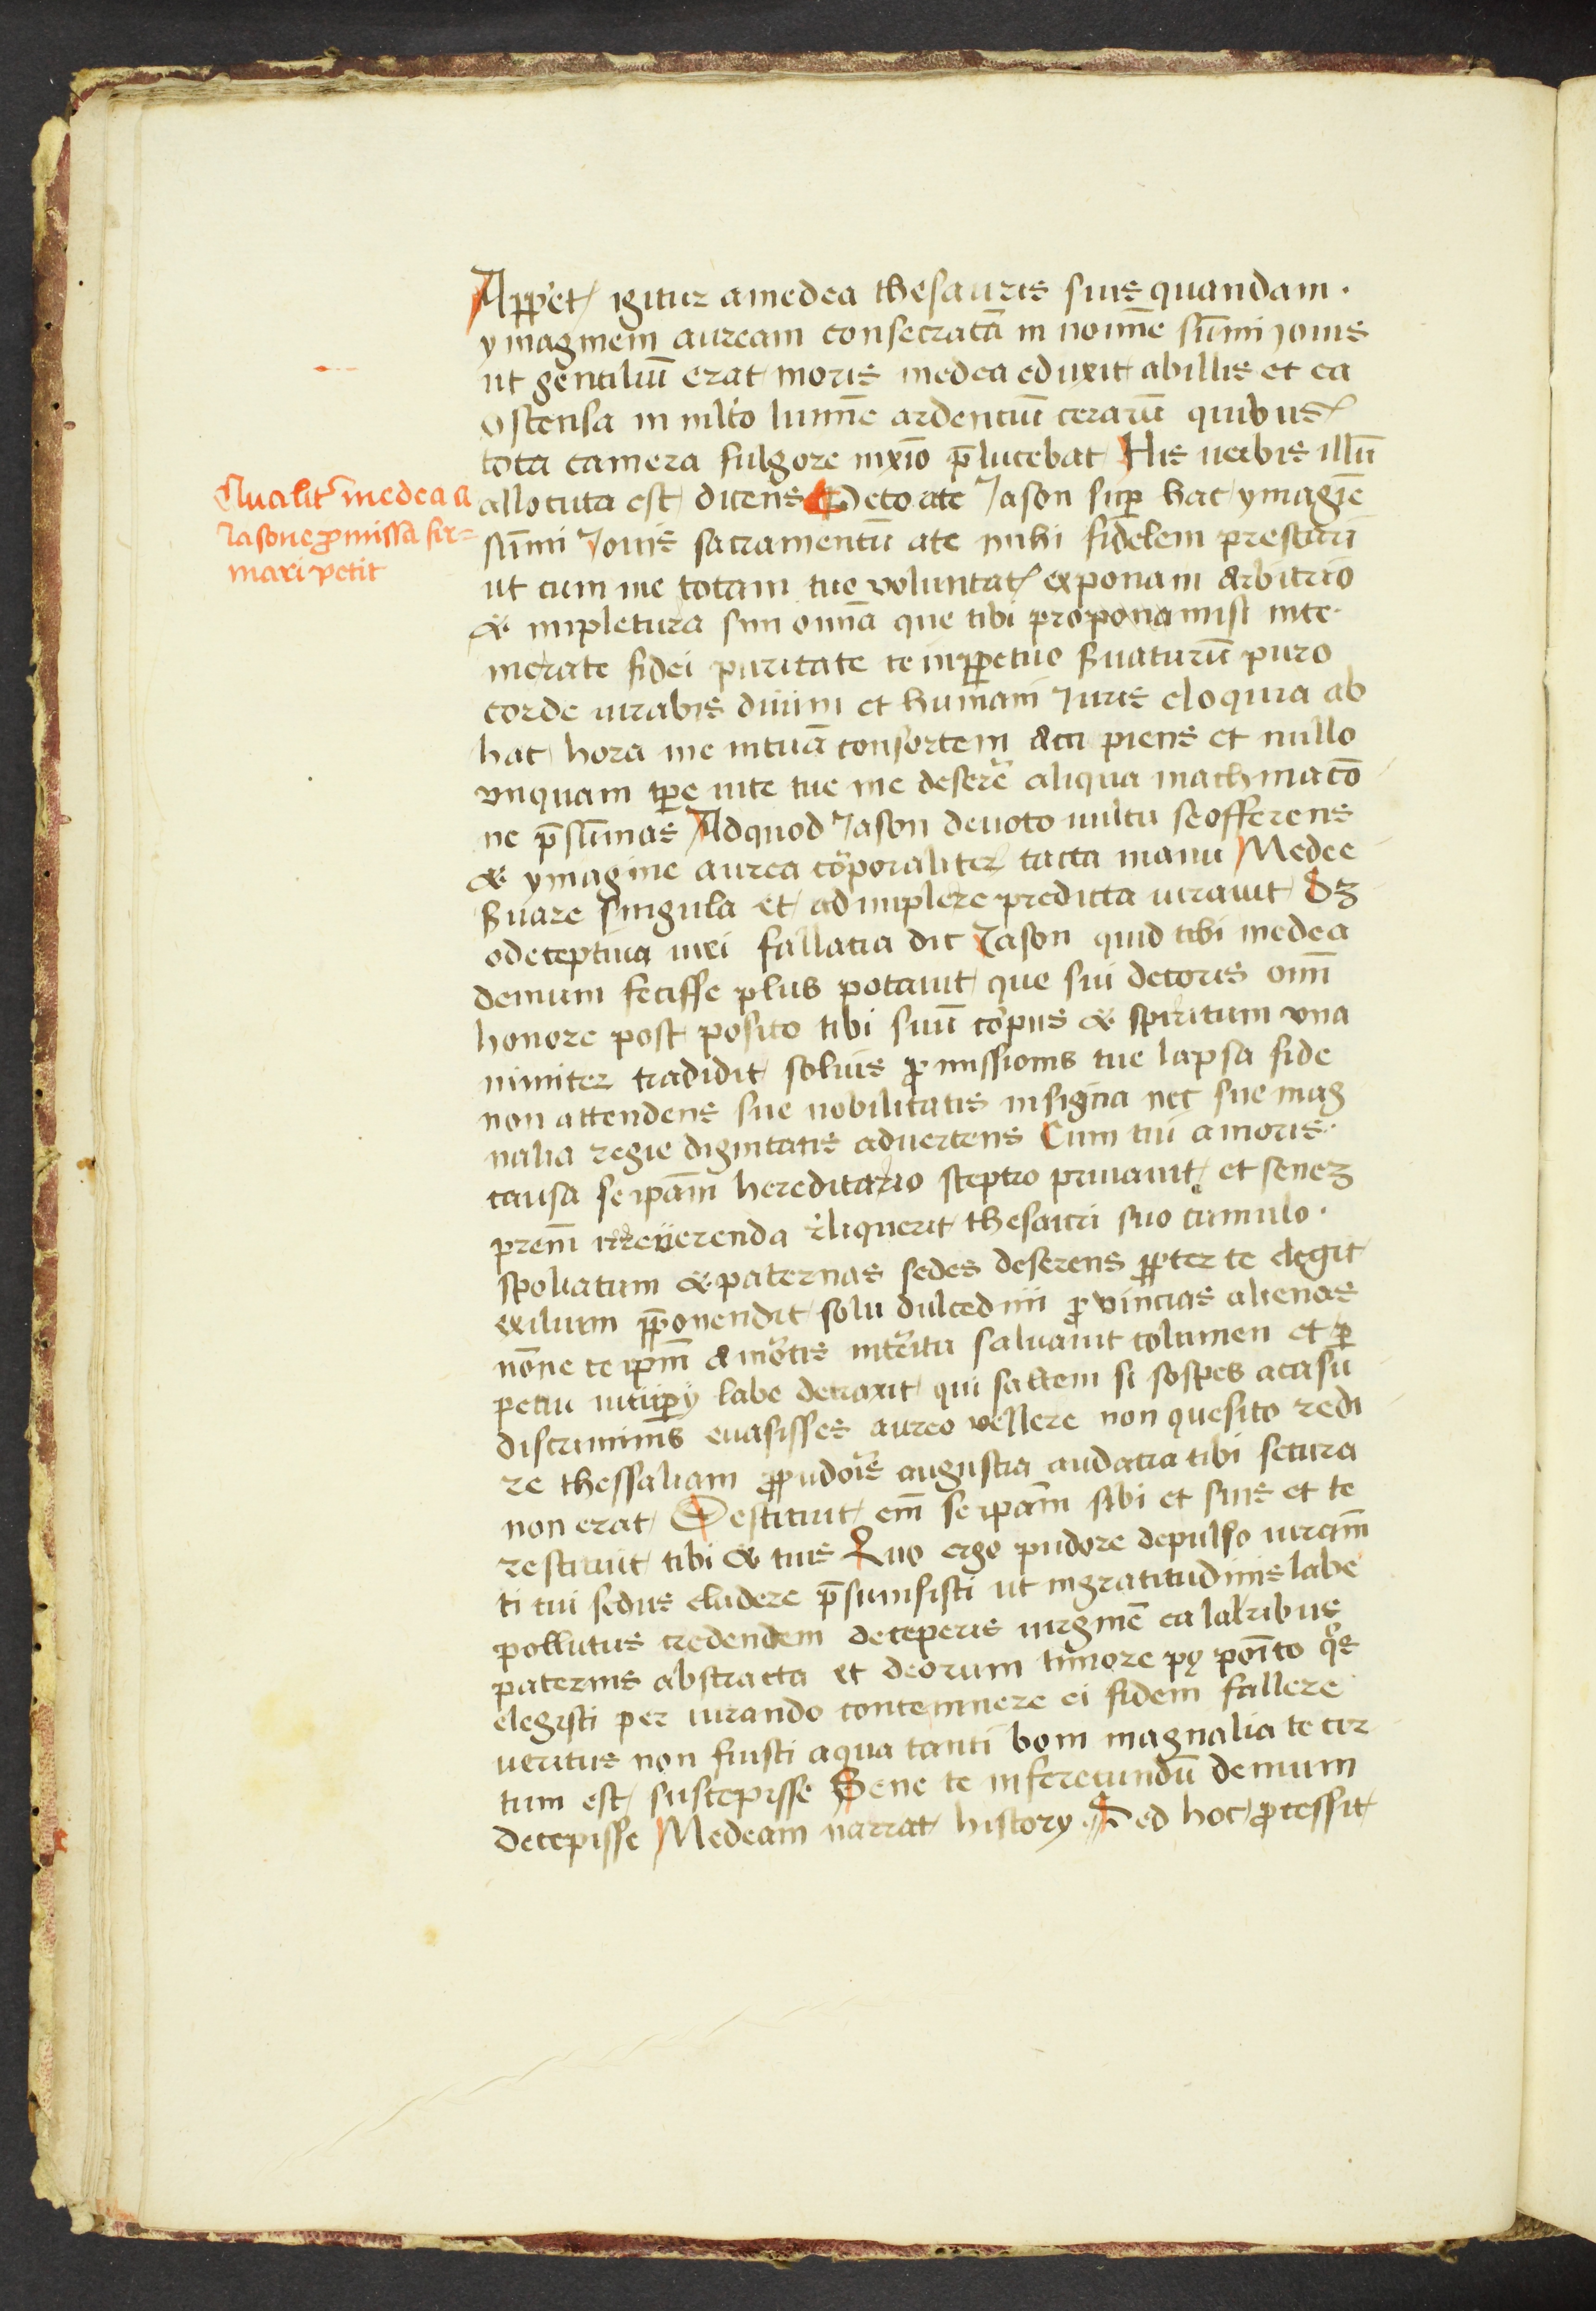 App̲et igitur amedea thesauris suis quandam ·
ymaginem auream consecratā in noīne sūmi jouis
ut gentiliū erat moris medea eduxit abillis et ea
ostensa in mlto lumīe ardenciū cerarū quibus
tota camera fulgore nīxio p̄lucebat His uerbis illū
Qualit medea a
Iasone ꝓmissa fir=
mari petit
allocuta est dicens Peto ate Jason suꝑ hac ymagīe
sūmi Jouis sacramentū ate mihi fidelem prestari
ut cum me totam tue voluntatꝭ exponam arbitrio
& impletura sim omīa que tibi propona misi inte·
merate fidei puritate te inꝑpetuo ẞuaturū puro
corde iurabis diuini et humani Juris eloquia ab
hac hora me intuā consortem Acci piens et nullo
vnquam tꝑe uite tue me deserē aliqua machinacō
ne p̄sumas Adquod Jason deuoto uultu seofferens
& ymagine aurea corporaliter tacta manu Medee
ẞuare singula et ad implere predicta iurauit Sꝫ
o deceptiua uiri fallacia dic Jason quid tibi medea
demum fecisse plus potauit que sui decoris omī
honore post posito tibi suū corpus & spiritum vna
nimiter tradidit solius ꝓmissionis tue lapsa fide
non attendens sue nobilitatis insignia nec sue mag
nalia regie dignitatis aduertens Cum tui amoris·
causa se ip̄am hereditario sceptro priuauit et seneꝫ
prem̄ irreuerenda rliquerit thesauri suo cumulo ·
spoliatum & paternas sedes deserens ꝓpter te elegit
exilium p̄ponendit solu dulcedini ꝓvincias alienas
nōne te ip̄m amortis interitu saluauit columen et ꝑ
petui uitupꝑy labe detraxit qui saltem si sospes acasu
discriminis euasisses aureo vellere non quesito redi
re thessaliam ꝓpudoris angustia audacia tibi secura
non erat Destituit em̄ se ip̄am sibi et suis et te
restituit tibi & tuis Quo ergo pudore depulso iuram̄
ti tui fedus eludere p̄sumsisti ut ingratitudinis labe
pollutus credendem deceperis uirginē ea laribus
paternis abstracta et deorum timore py pōito qͦs
elegisti per iurando contemnere ei fidem fallere
ueritus non fuisti aqua tanti boni magnalia te cer
tum est suscepisse Sene te inferecundū demum
decepisse Medeam narrat history · Sed hoc ꝓcessit